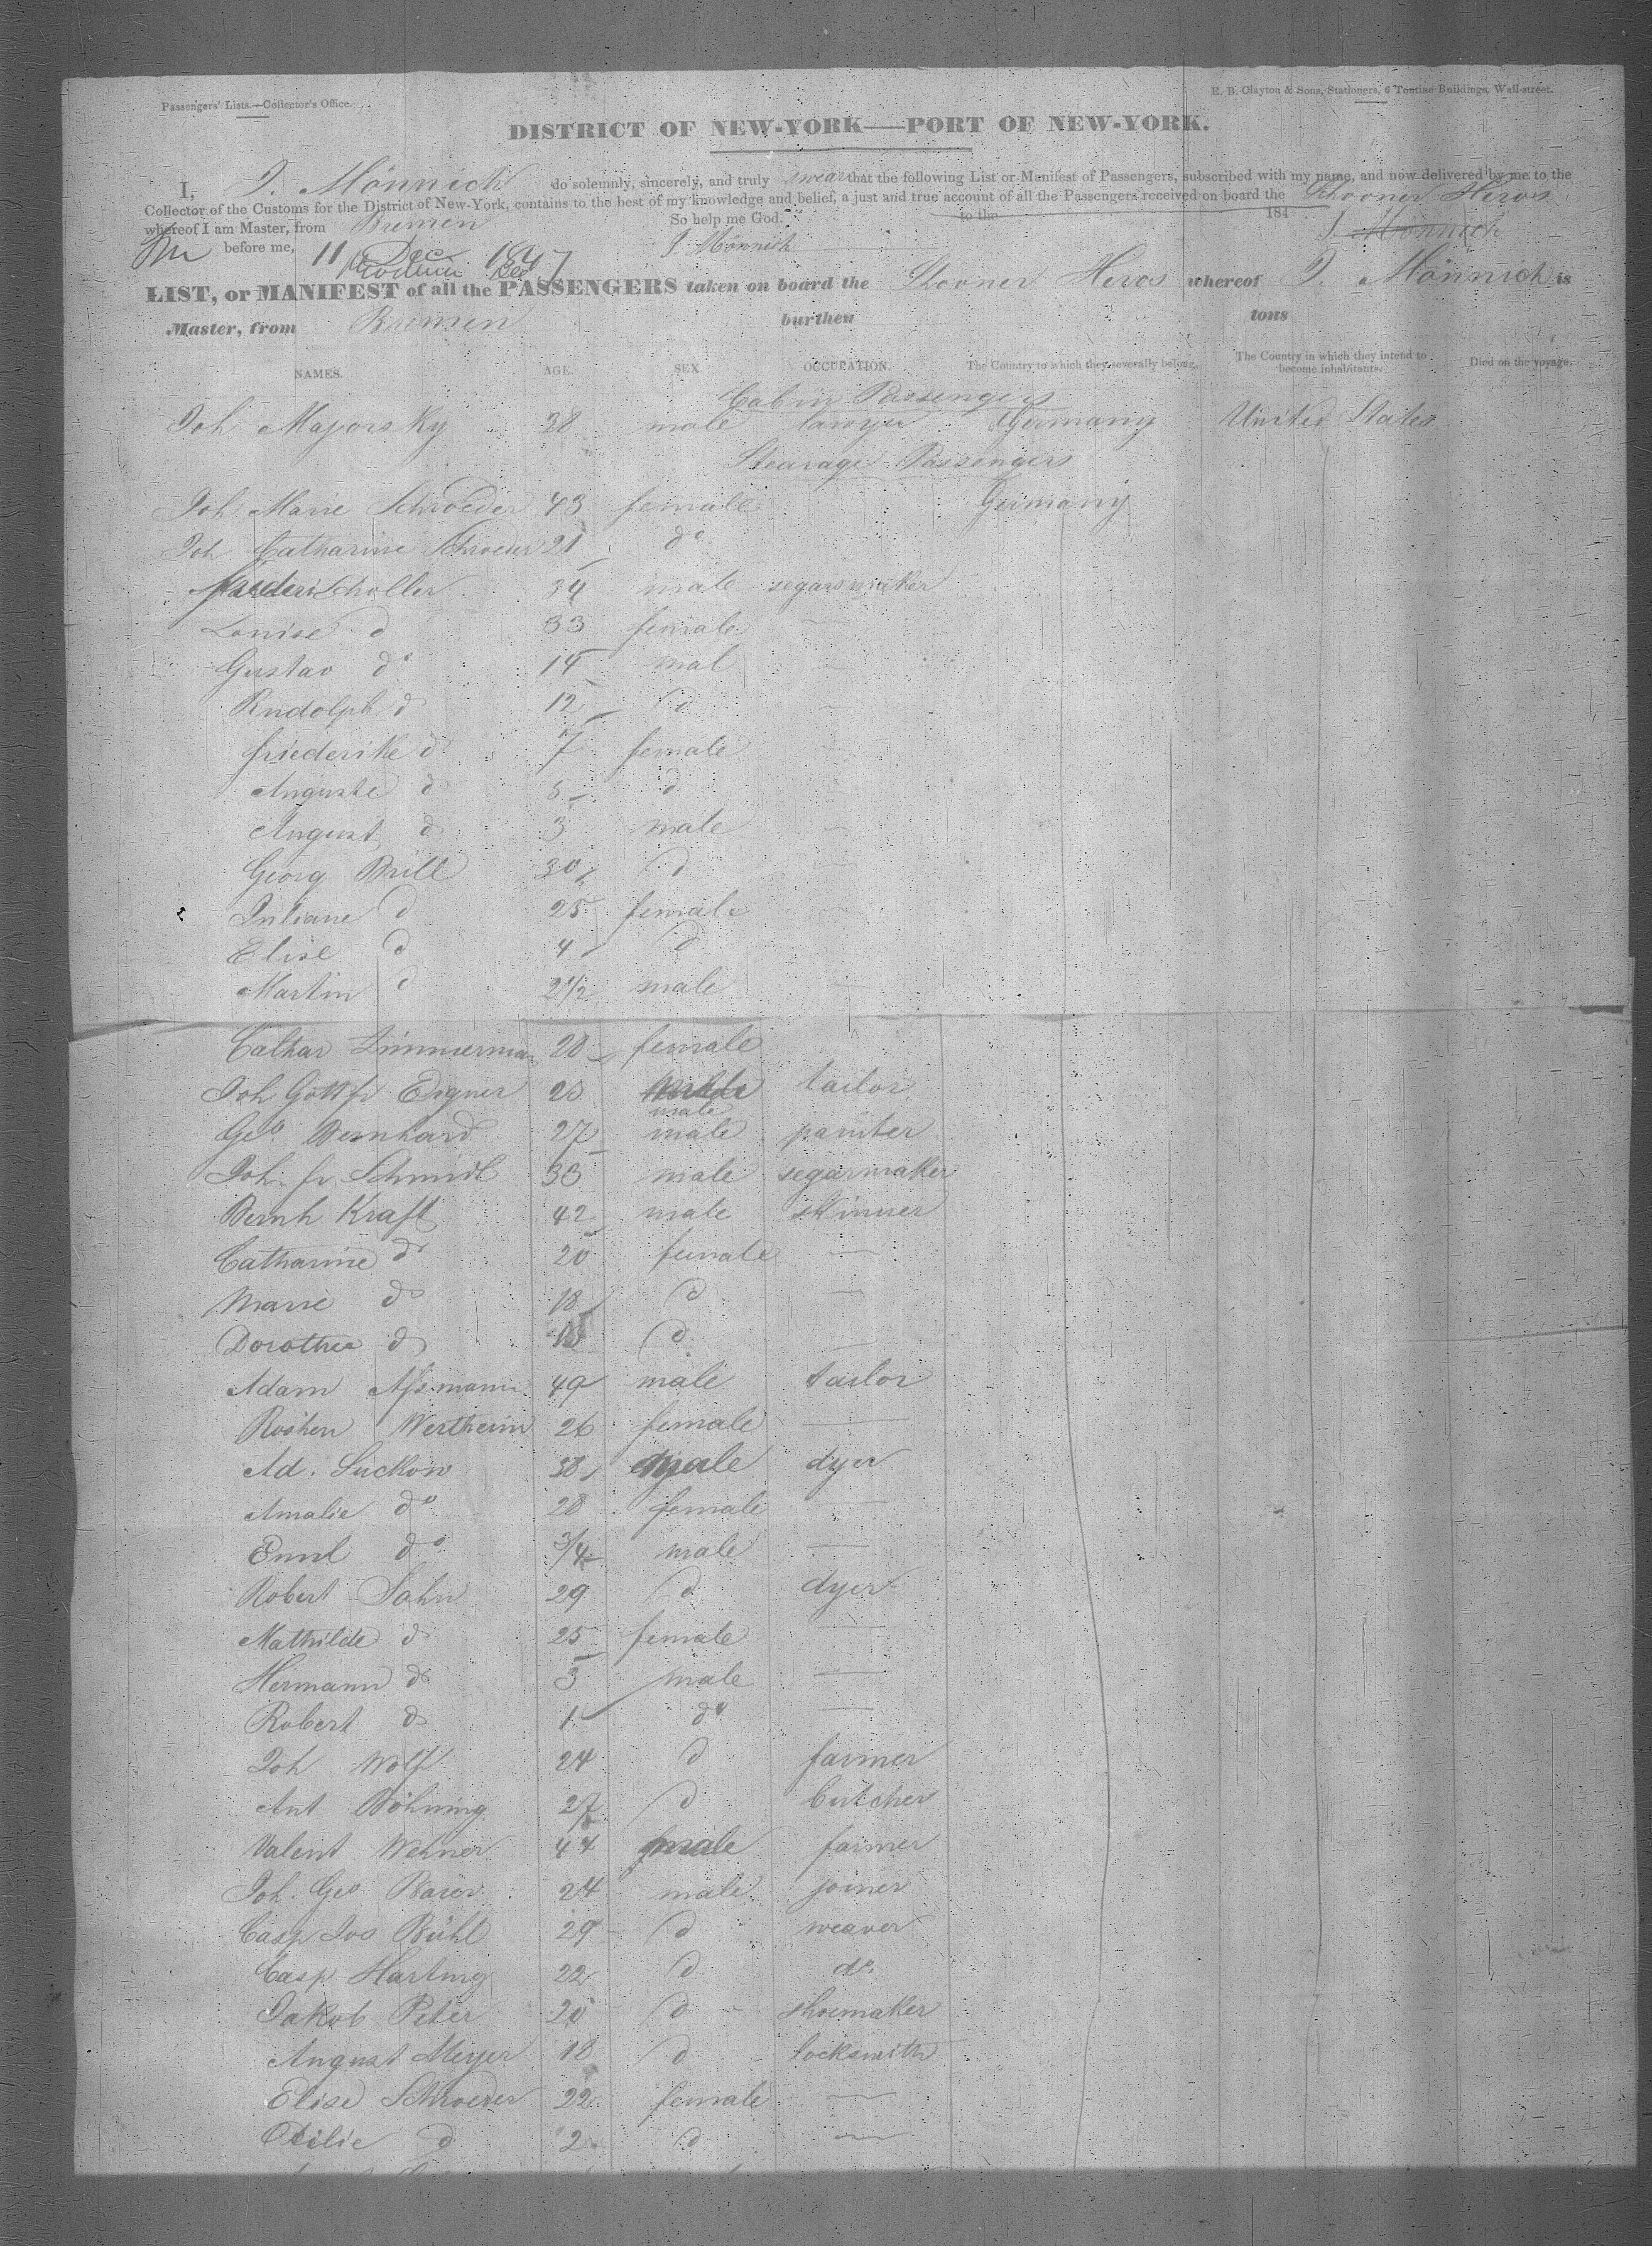 Passengers' Lists.—Collector's Office.
E. B. Clayton & Sons, Stationers, 6 Tontine Buildings, Wall-street.
DISTRICT OF NEW-YORK—PORT OF NEW-YORK.
I, J. Mönnich do solemnly, sincerely, and truly swear that the following List or Manifest of Passengers, subscribed with my name, and now delivered by me to the
Collector of the Customs for the District of New-York, contains to the best of my knowledge and belief, a just and true account of all the Passengers received on board the Schooner Heros
whereof I am Master, from Bremen So help me God. to the 184
before me, 11 Dec 1847 J. Mönnich J. Mönnich
LIST, or MANIFEST of all the PASSENGERS taken on board the Schooner Heros whereof J. Mönnich is
Master, from Bremen burthen tons
NAMES. AGE. SEX OCCUPATION. The Country to which they severally belong. The Country in which they intend to become inhabitants. Died on the voyage.
Cabin Passengers
Joh. Majorsky 28 male lawyer Germany United States
Stearage Passengers
Joh Marie Schroeder 43 female Germany
Joh Catharine Schroeder 21 do
Scholler 34 male segarsmaker
Louise d 33 female
Gustav do 14 mal
Rudolph d 12 d
friederike d 7 female
Auguste d 5 d
August d 3 male
Georg Brill 30 d
Juliane d 25 female
Elise d 4 d
Martin d 2 1/2 male
Cathar Zimmerman 28 female
Joh Gottfr Eigner 25 male tailor
Geo Bernhard 27 male painter
Joh. fr Schmidt 33 male segarmaker
Bernh Kraft 42 male skinner
Catharine do 20 female
Marie do 18 d
Dorothea d 15 d
Adam Assmann 49 male tailor
Roschen Wertheim 26 female
Ad. Suckow 38 male dyer
Amalie do 28 female
Emil do 3/4 male
Robert Sahn 29 d dyer
Mathilde d 25 female
Hermann do 3 male
Robert d 1 do
Joh Wolf 24 d farmer
Ant Böhning 27 d butcher
Valent Wehner 44 male farmer
Joh. Geo Baier 24 male joiner
Casp Jos Bühl 29 d weaver
Casp Hartung 22 d do
Jakob Peter 20 d shoemaker
August Meyer 18 d locksmith
Elise Schroeder 22 female
Otilie d 2 d